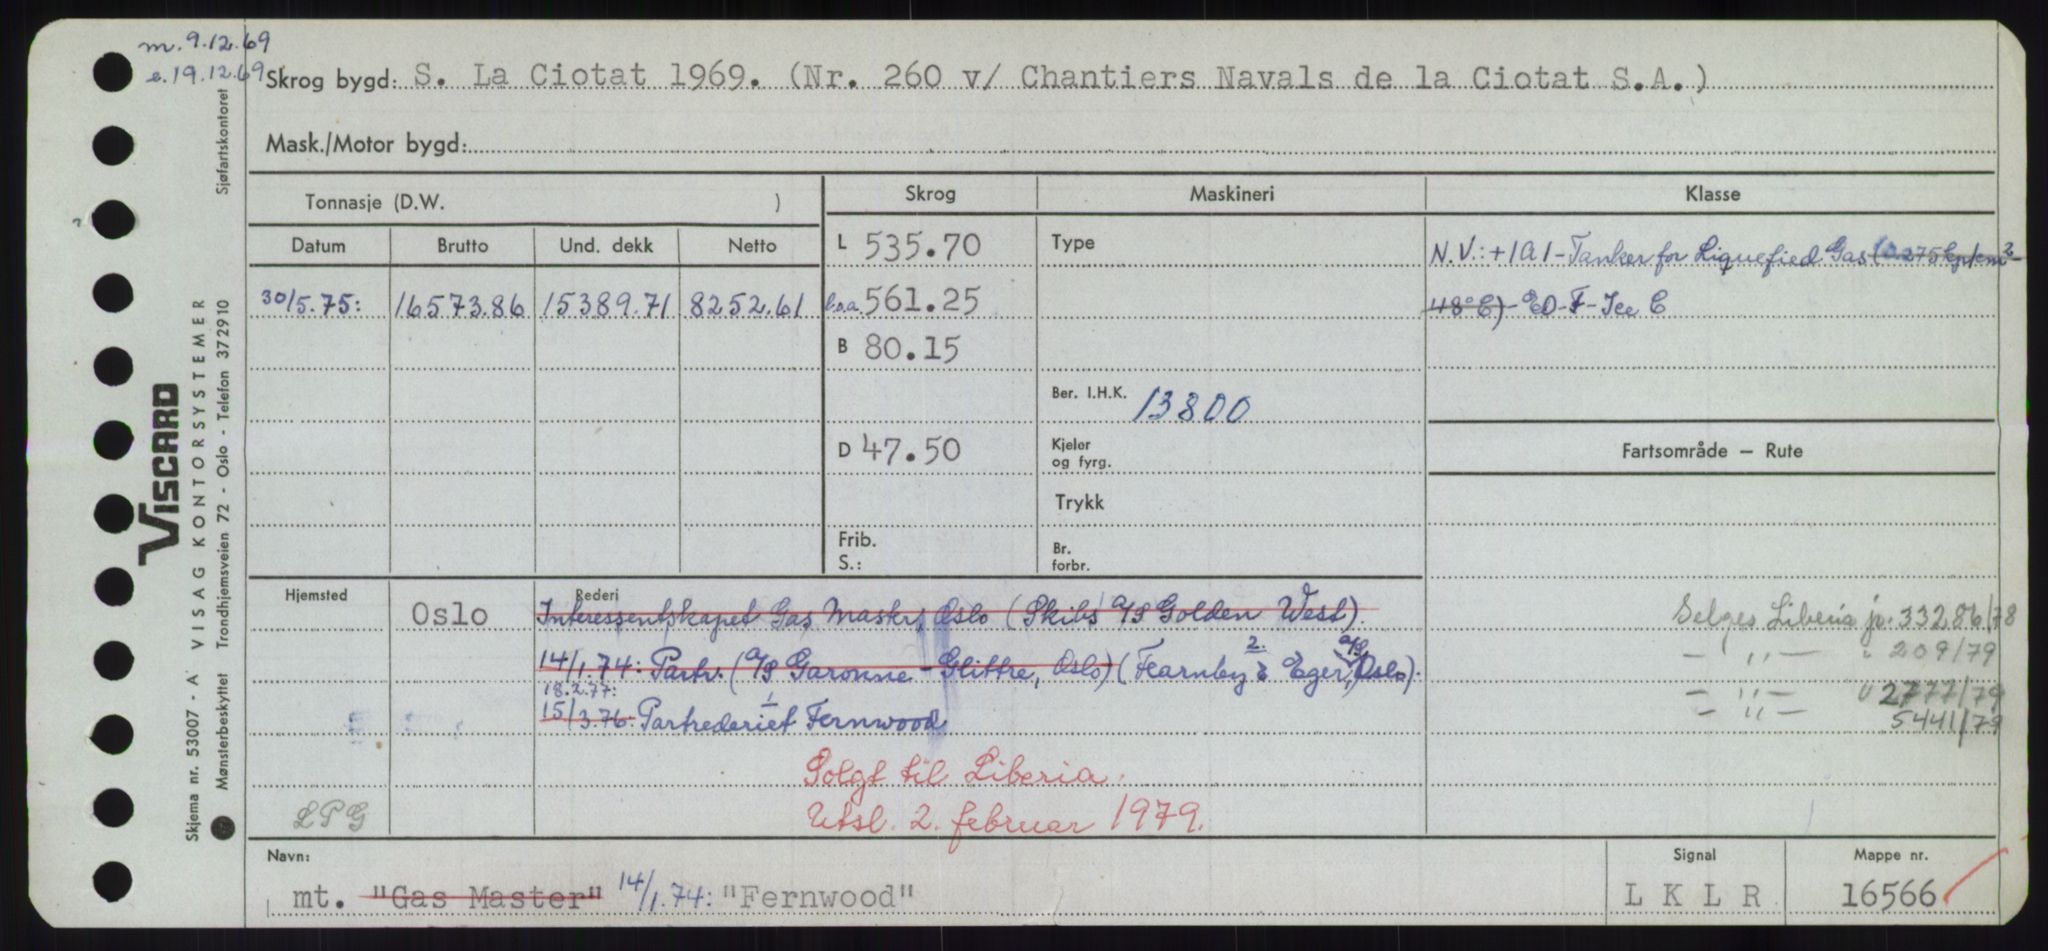 m. 9.12.69
e. 19.12.69
Skrog bygd: S. La Ciotat 1969. (Nr. 260 v/ Chantiers Navals de la Ciotat S.A.)
Mask./Motor bygd:
Tonnasje (D.W. )
Skrog
Maskineri
Klasse
Datum Brutto Und. dekk Netto
30/5.75: 16573.86 15389.71 8252.61
L 535.70
l.o.a. 561.25
B 80.15
D 47.50
Frib.
S.:
Type
Ber. I.H.K. 13800
Kjeler
og fyrg.
Trykk
Br.
forbr.
N.V.: +1A1-Tanker for Liquefied Gas (0.275kp/cm²-
48°C) - EO-F-Ice C
Fartsområde – Rute
Selges Liberia jr. 33286/78
— " — " 209/79
— " — " 2777/79
— " — 5441/79
Hjemsted
Oslo
Rederi
Interessentskapet Gas Master, Oslo (Skibs A/S Golden West).
14/1.74: Partr. (A/S Garonne - Glittre, Oslo) (Fearnley & Eger, A/S, Oslo).
18.2.77:
15/3.76: Partrederiet Fernwood
Solgt til Liberia.
Utsl. 2. februar 1979.
LPG
Navn:
mt. "Gas Master" 14/1.74: "Fernwood"
Signal
L K L R
Mappe nr.
16566
VISCARD
VISAG KONTORSYSTEMER
Skjema nr. 53007 - A
Mønsterbeskyttet Trondhjemsveien 72 - Oslo - Telefon 372910 Sjøfartskontoret